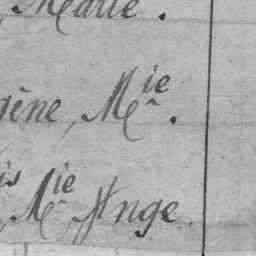 , Marie.
gène, Mie.
is, Mie Ange